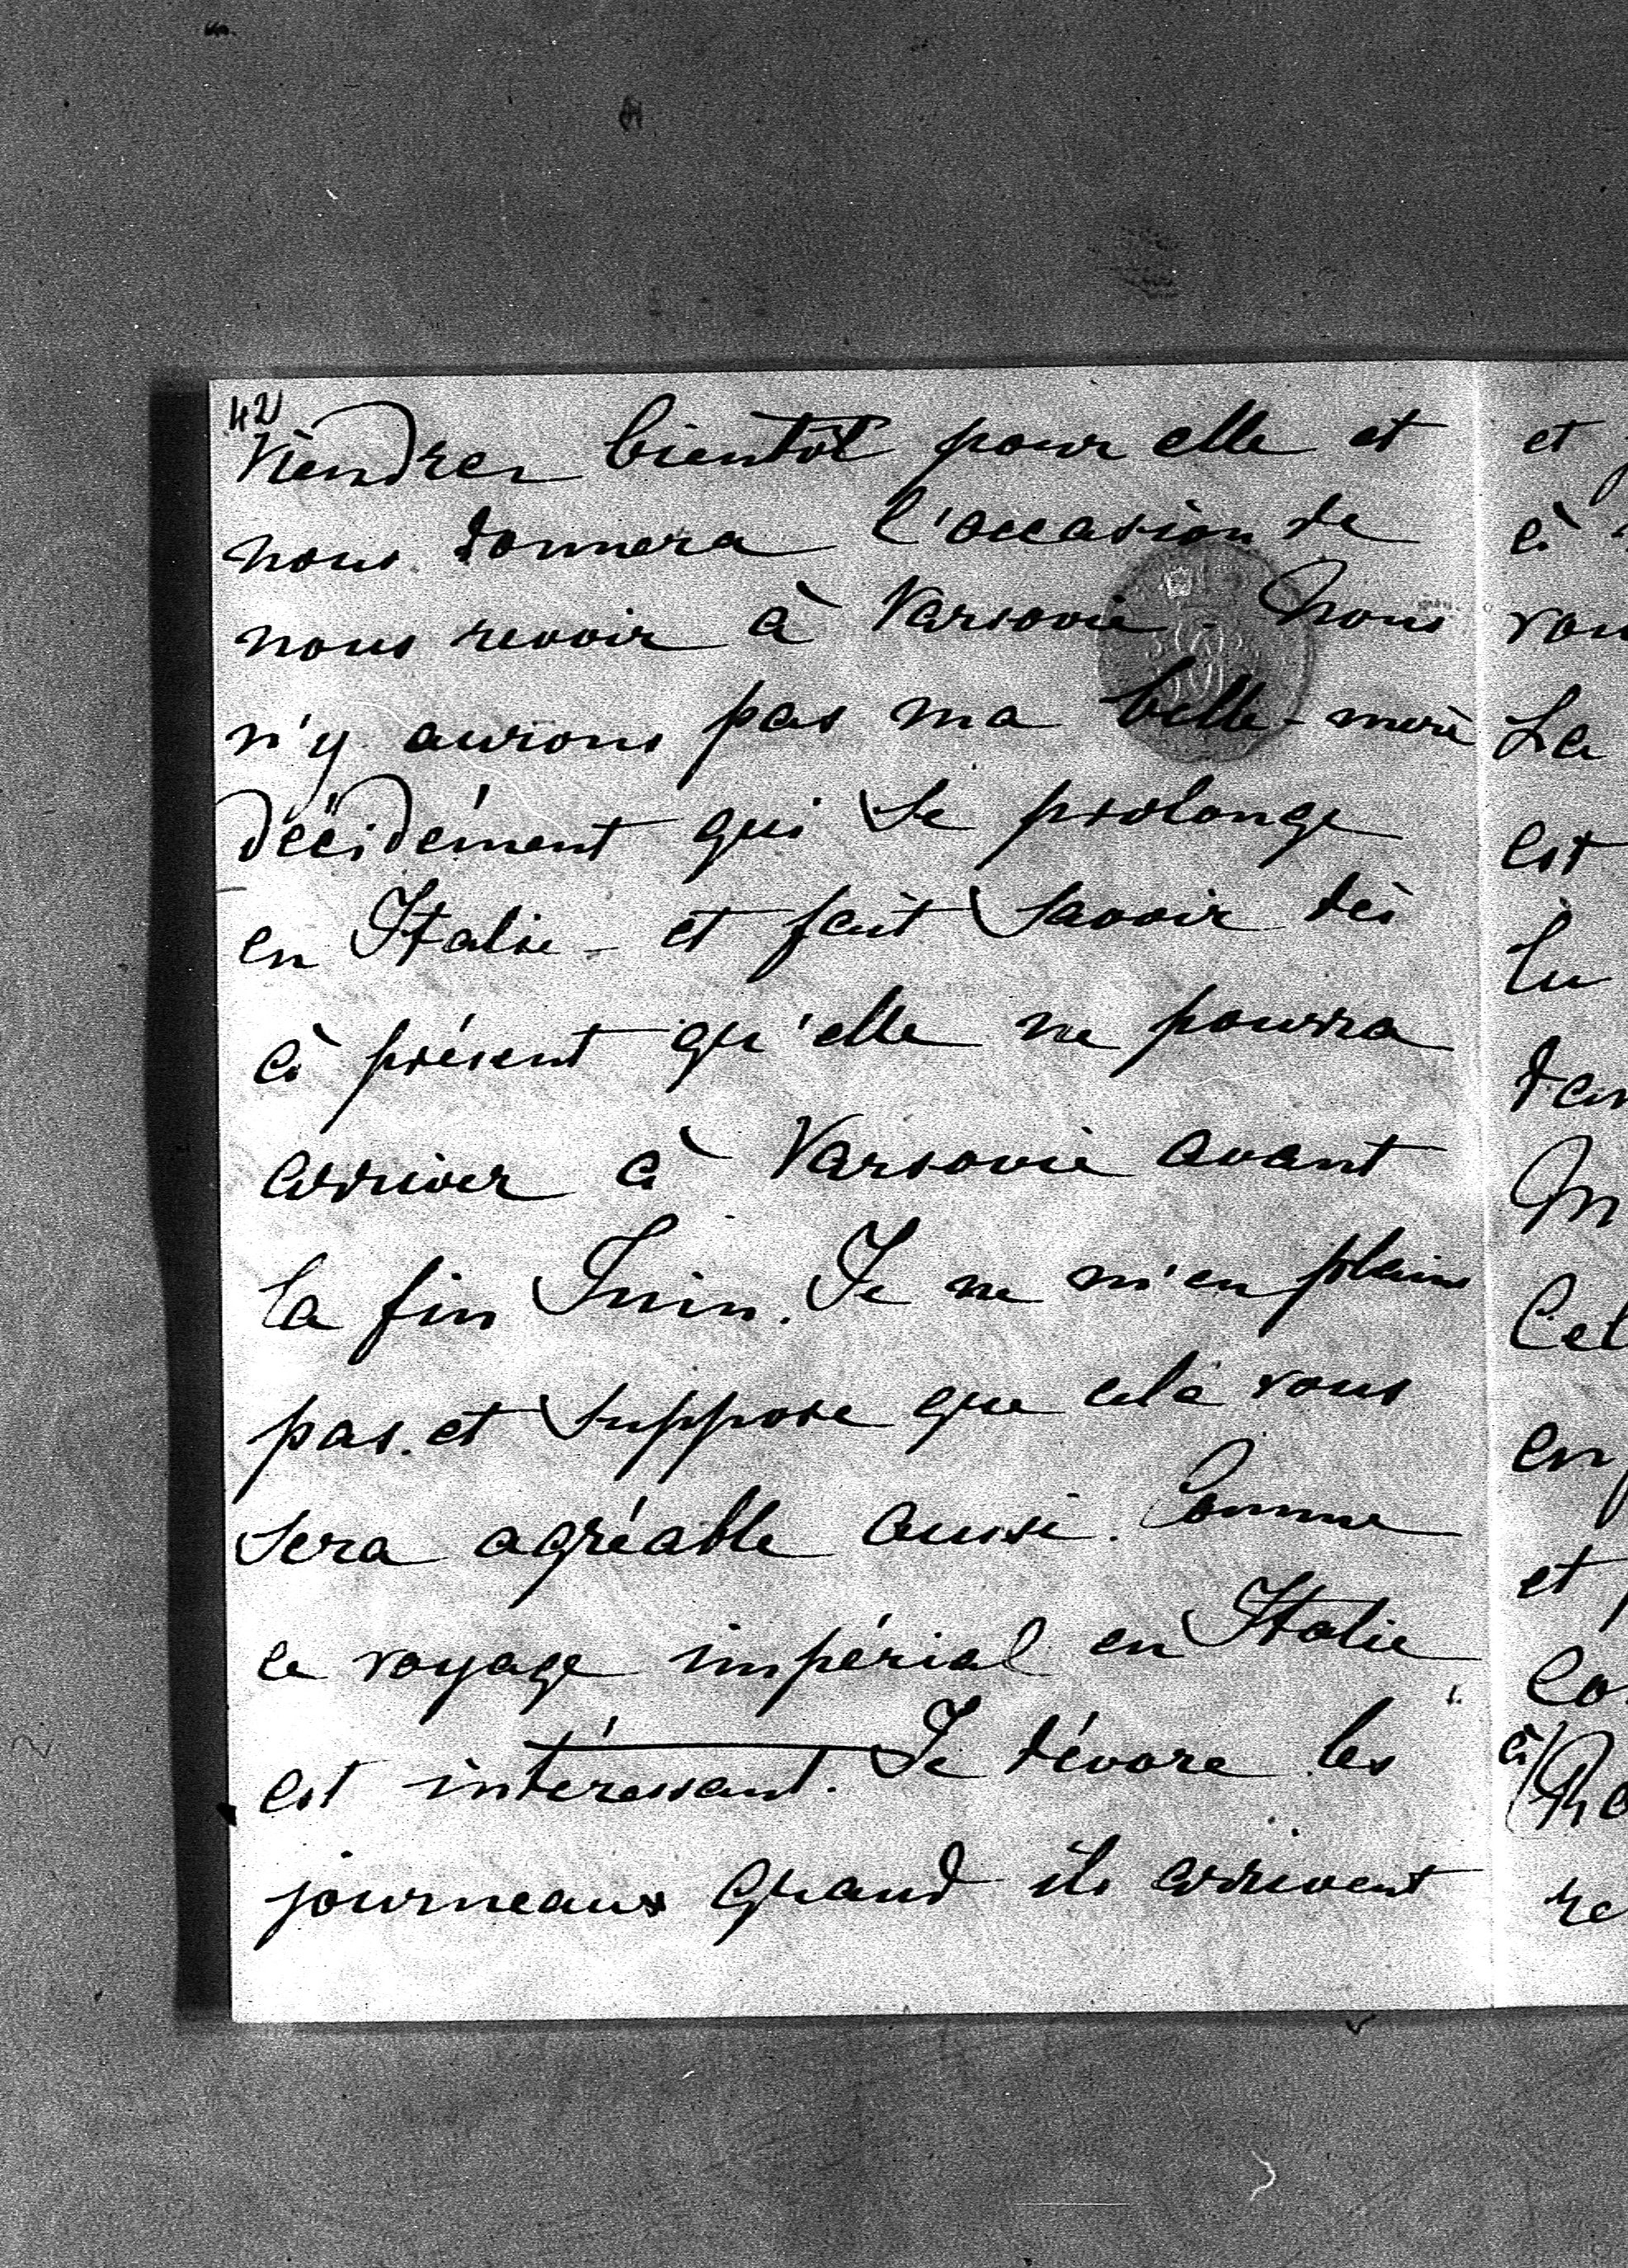 42
viendra bientôt pour elle et
nous donnera l'occasion de
nous revoir à Varsovie. Nous
n'y aurons pas ma belle-mère
décidément qui se prolonge
en Italie - et fait savoir dès
à présent qu'elle ne pourra
arriver à Varsovie avant
la fin Juin. Je ne m'en plains
pas et suppose que cela vous
sera agréable aussi. Comme
ce voyage impérial en Italie
est intéressant. Je dévore les
journeaux quand ils arrivent
et
à
vou
La
est
lu
dan
M
Cet
en
et
Co
à
re